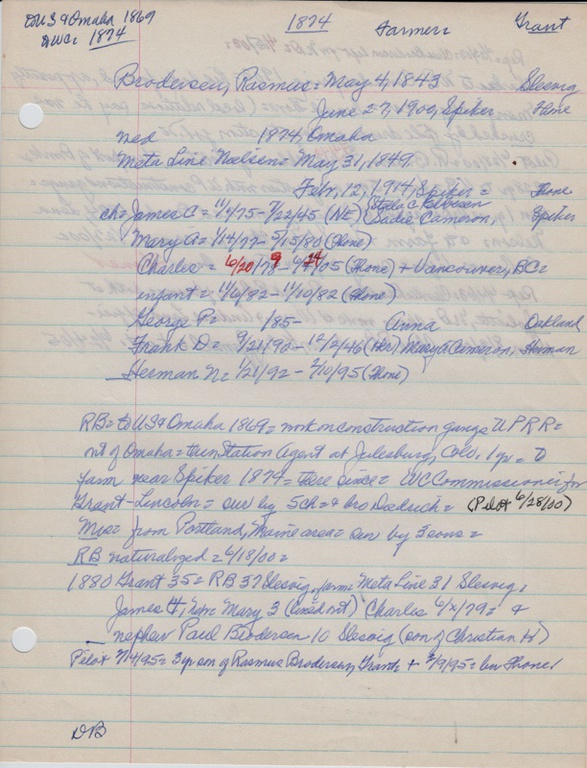 to US & Omaha 1869
WC = 1874
1874
Farmer =
Grant
Brodersen, Rasmus = May 4, 1843 Slesvig
June 27, 1900, Spiker Home
med 1874, Omaha
Meta Line Neelsen = May 31, 1849
Feb, 12, 1914, Spiker = Home
ch = James C = 11/4/75 - 7/22/45 (NE) Sadie Cameron, Spiker
Mary A = 1/14/77 - 5/15/80 (Home)
Charlie = 6/20/79 - /05 (Home) + Vancouver, BC =
infant = 11/6/82 - 11/10/82 (Home)
George P = /85 - Anna Oakland
Frank D = 9/21/90 - 12/2/46 (Her) Mary A Cameron, Herman
Herman N = 1/21/92 - 2/10/95 (Home)
RB = to US & Omaha 1869 = work on construction gangs UPRR =
out of Omaha = then Station Agent at Julesburg, Colo, 1 yr = to
farm near Spiker 1874 = there since = WC Commissioner for
Grant - Lincoln = sur by 5 ch = & bro Dedrich = (Pilot 6/28/00)
Mrs = from Portland, Maine area = sur by 3 sons =
RB naturalized = 6/18/00 =
1880 Grant 35 = RB 37 Slesvig, farm = Meta Line 31 Slesvig,
James 4, Mary 3 (lined out) Charlie 6/x/79 = &
nephew Paul Brodersen 10 Slesvig (son of Christian H)
Pilot 2/14/95 = 3 yr son of Rasmus Brodersen, Grant + 2/9/95 = bur Home
DB